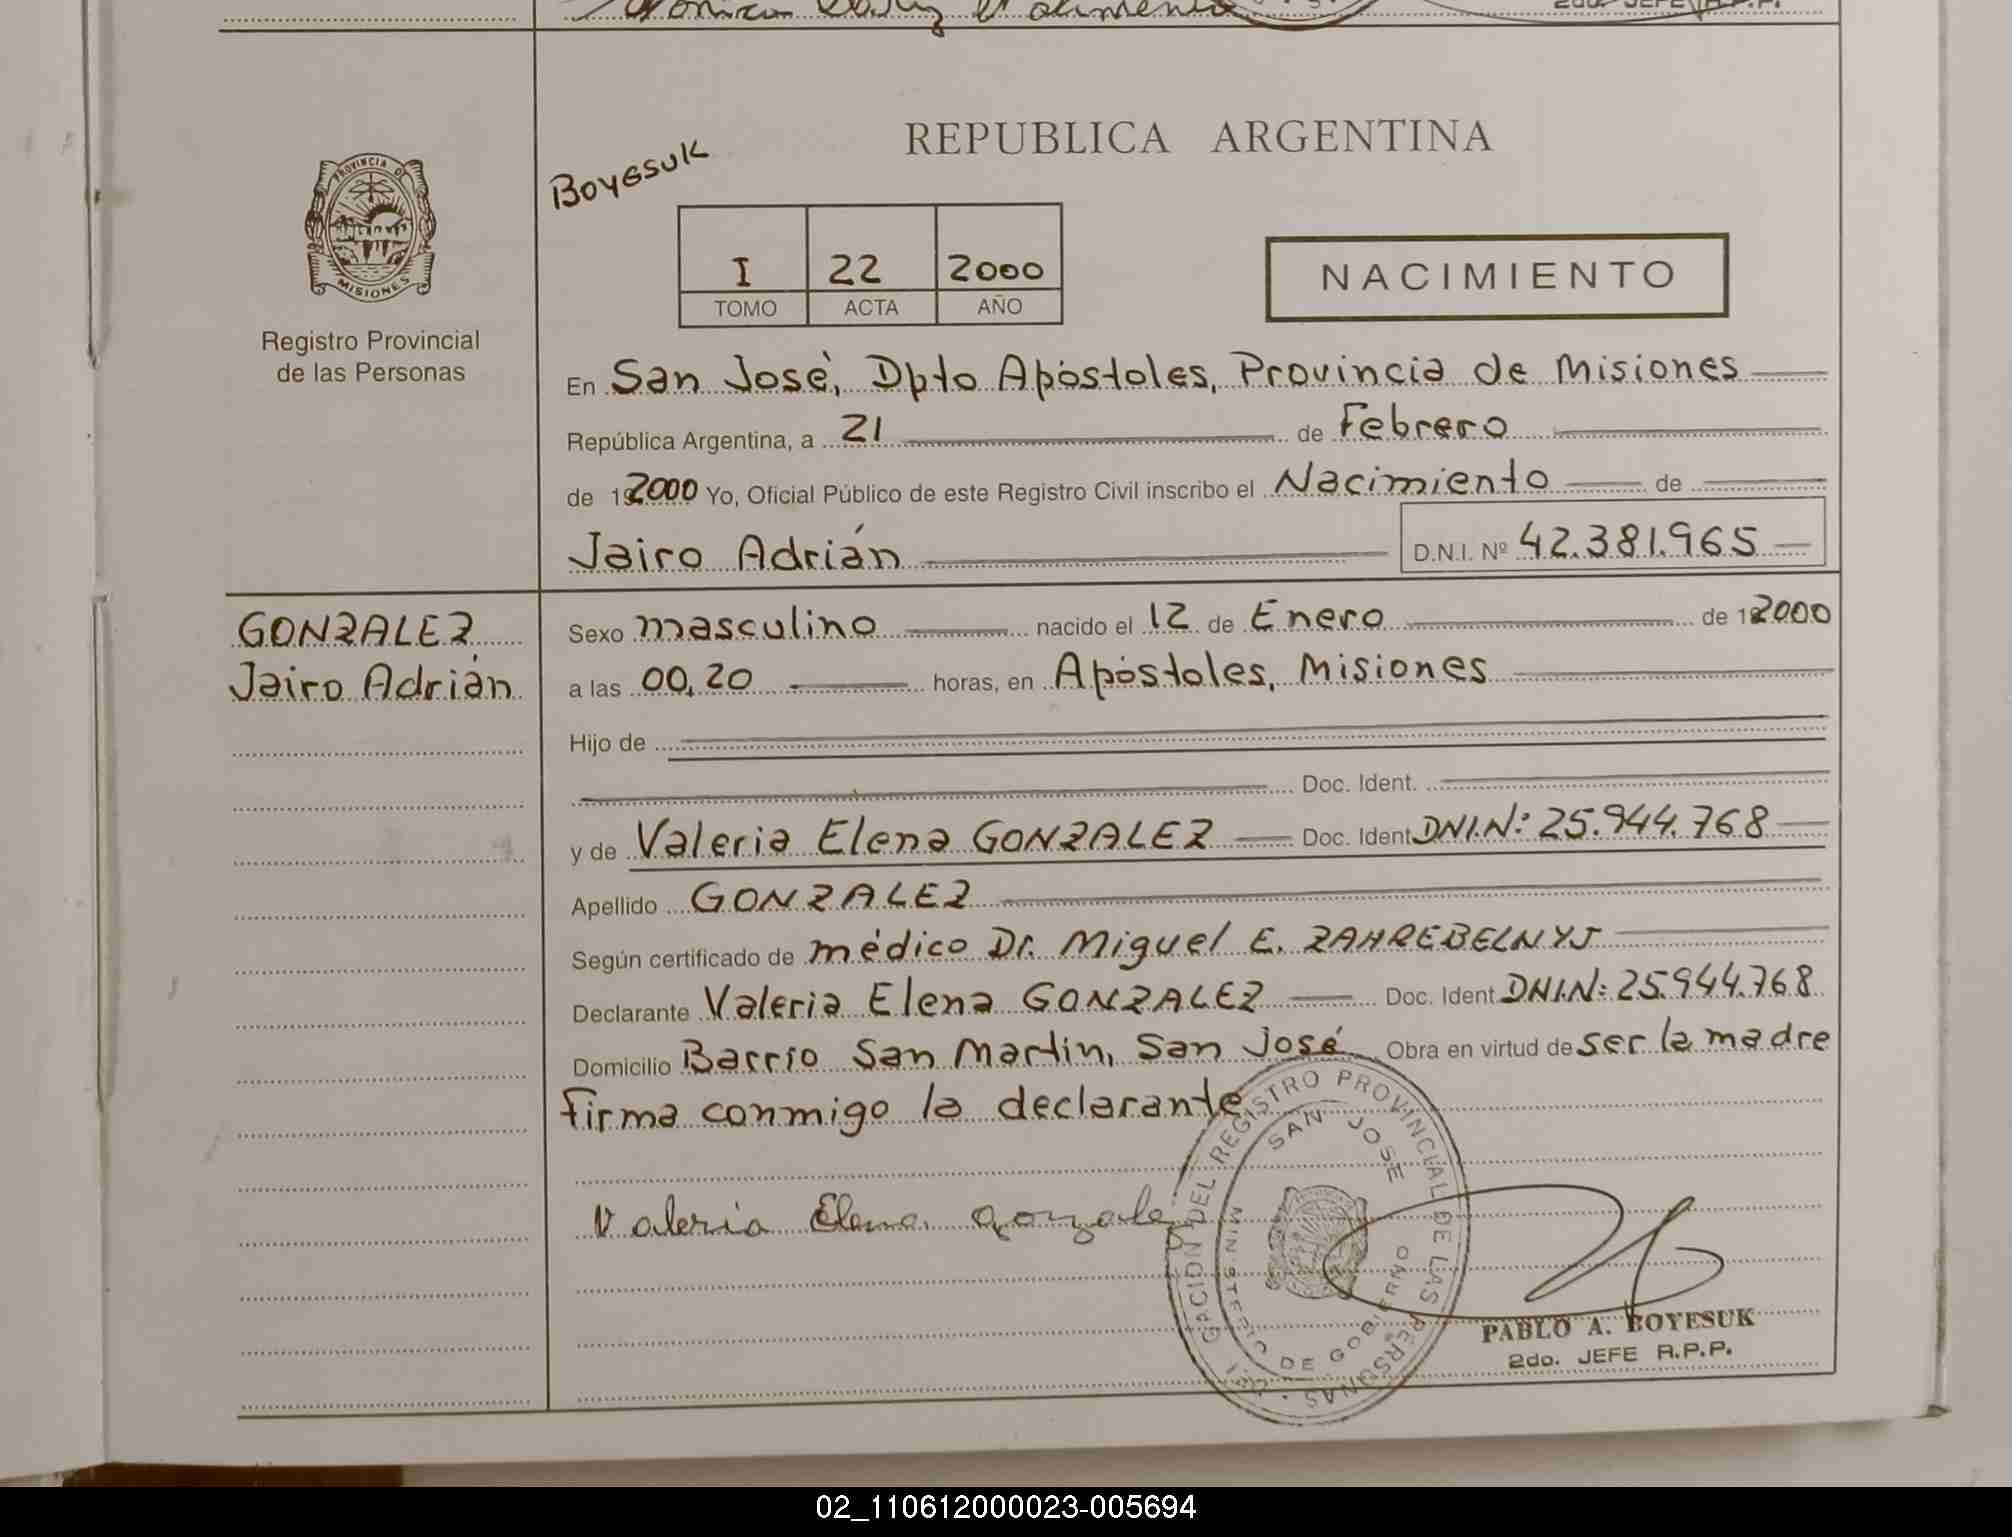 2do. JEFE R.P.P.
PROVINCIA DE
MISIONES
Registro Provincial
de las Personas
Boyesuk
REPUBLICA ARGENTINA
I 22 2000
TOMO ACTA AÑO
NACIMIENTO
En San José, Dpto Apóstoles, Provincia de Misiones
República Argentina, a 21 de Febrero
de 2000 Yo, Oficial Público de este Registro Civil inscribo el Nacimiento de
Jairo Adrián D.N.I. Nº 42.381.965
GONZALEZ
Jairo Adrián
Sexo masculino nacido el 12 de Enero de 2000
a las 00,20 horas, en Apóstoles, Misiones
Hijo de
Doc. Ident.
y de Valeria Elena GONZALEZ Doc. Ident DNI.N: 25.944.768
Apellido GONZALEZ
Según certificado de médico Dr. Miguel E. ZAHREBELNYJ
Declarante Valeria Elena GONZALEZ Doc. Ident DNI.N: 25.944.768
Domicilio Barrio San Martín, San José Obra en virtud de ser la madre
firma conmigo la declarante
Valeria Elena Gonzalez
DEL REGISTRO PROVINCIAL DE LAS PERSONAS
SAN JOSE
MINISTERIO DE GOBIERNO
PABLO A. BOYESUK
2do. JEFE R.P.P.
02_110612000023-005694